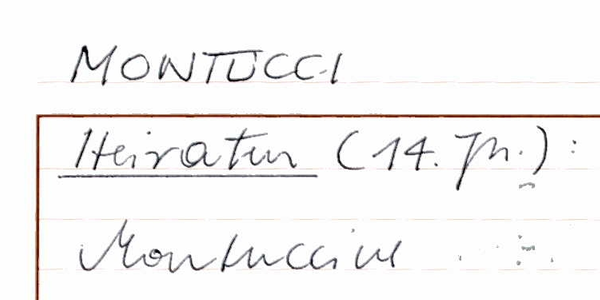 MONTUCCI
Heiraten (14. Jh.) :
Montuccini